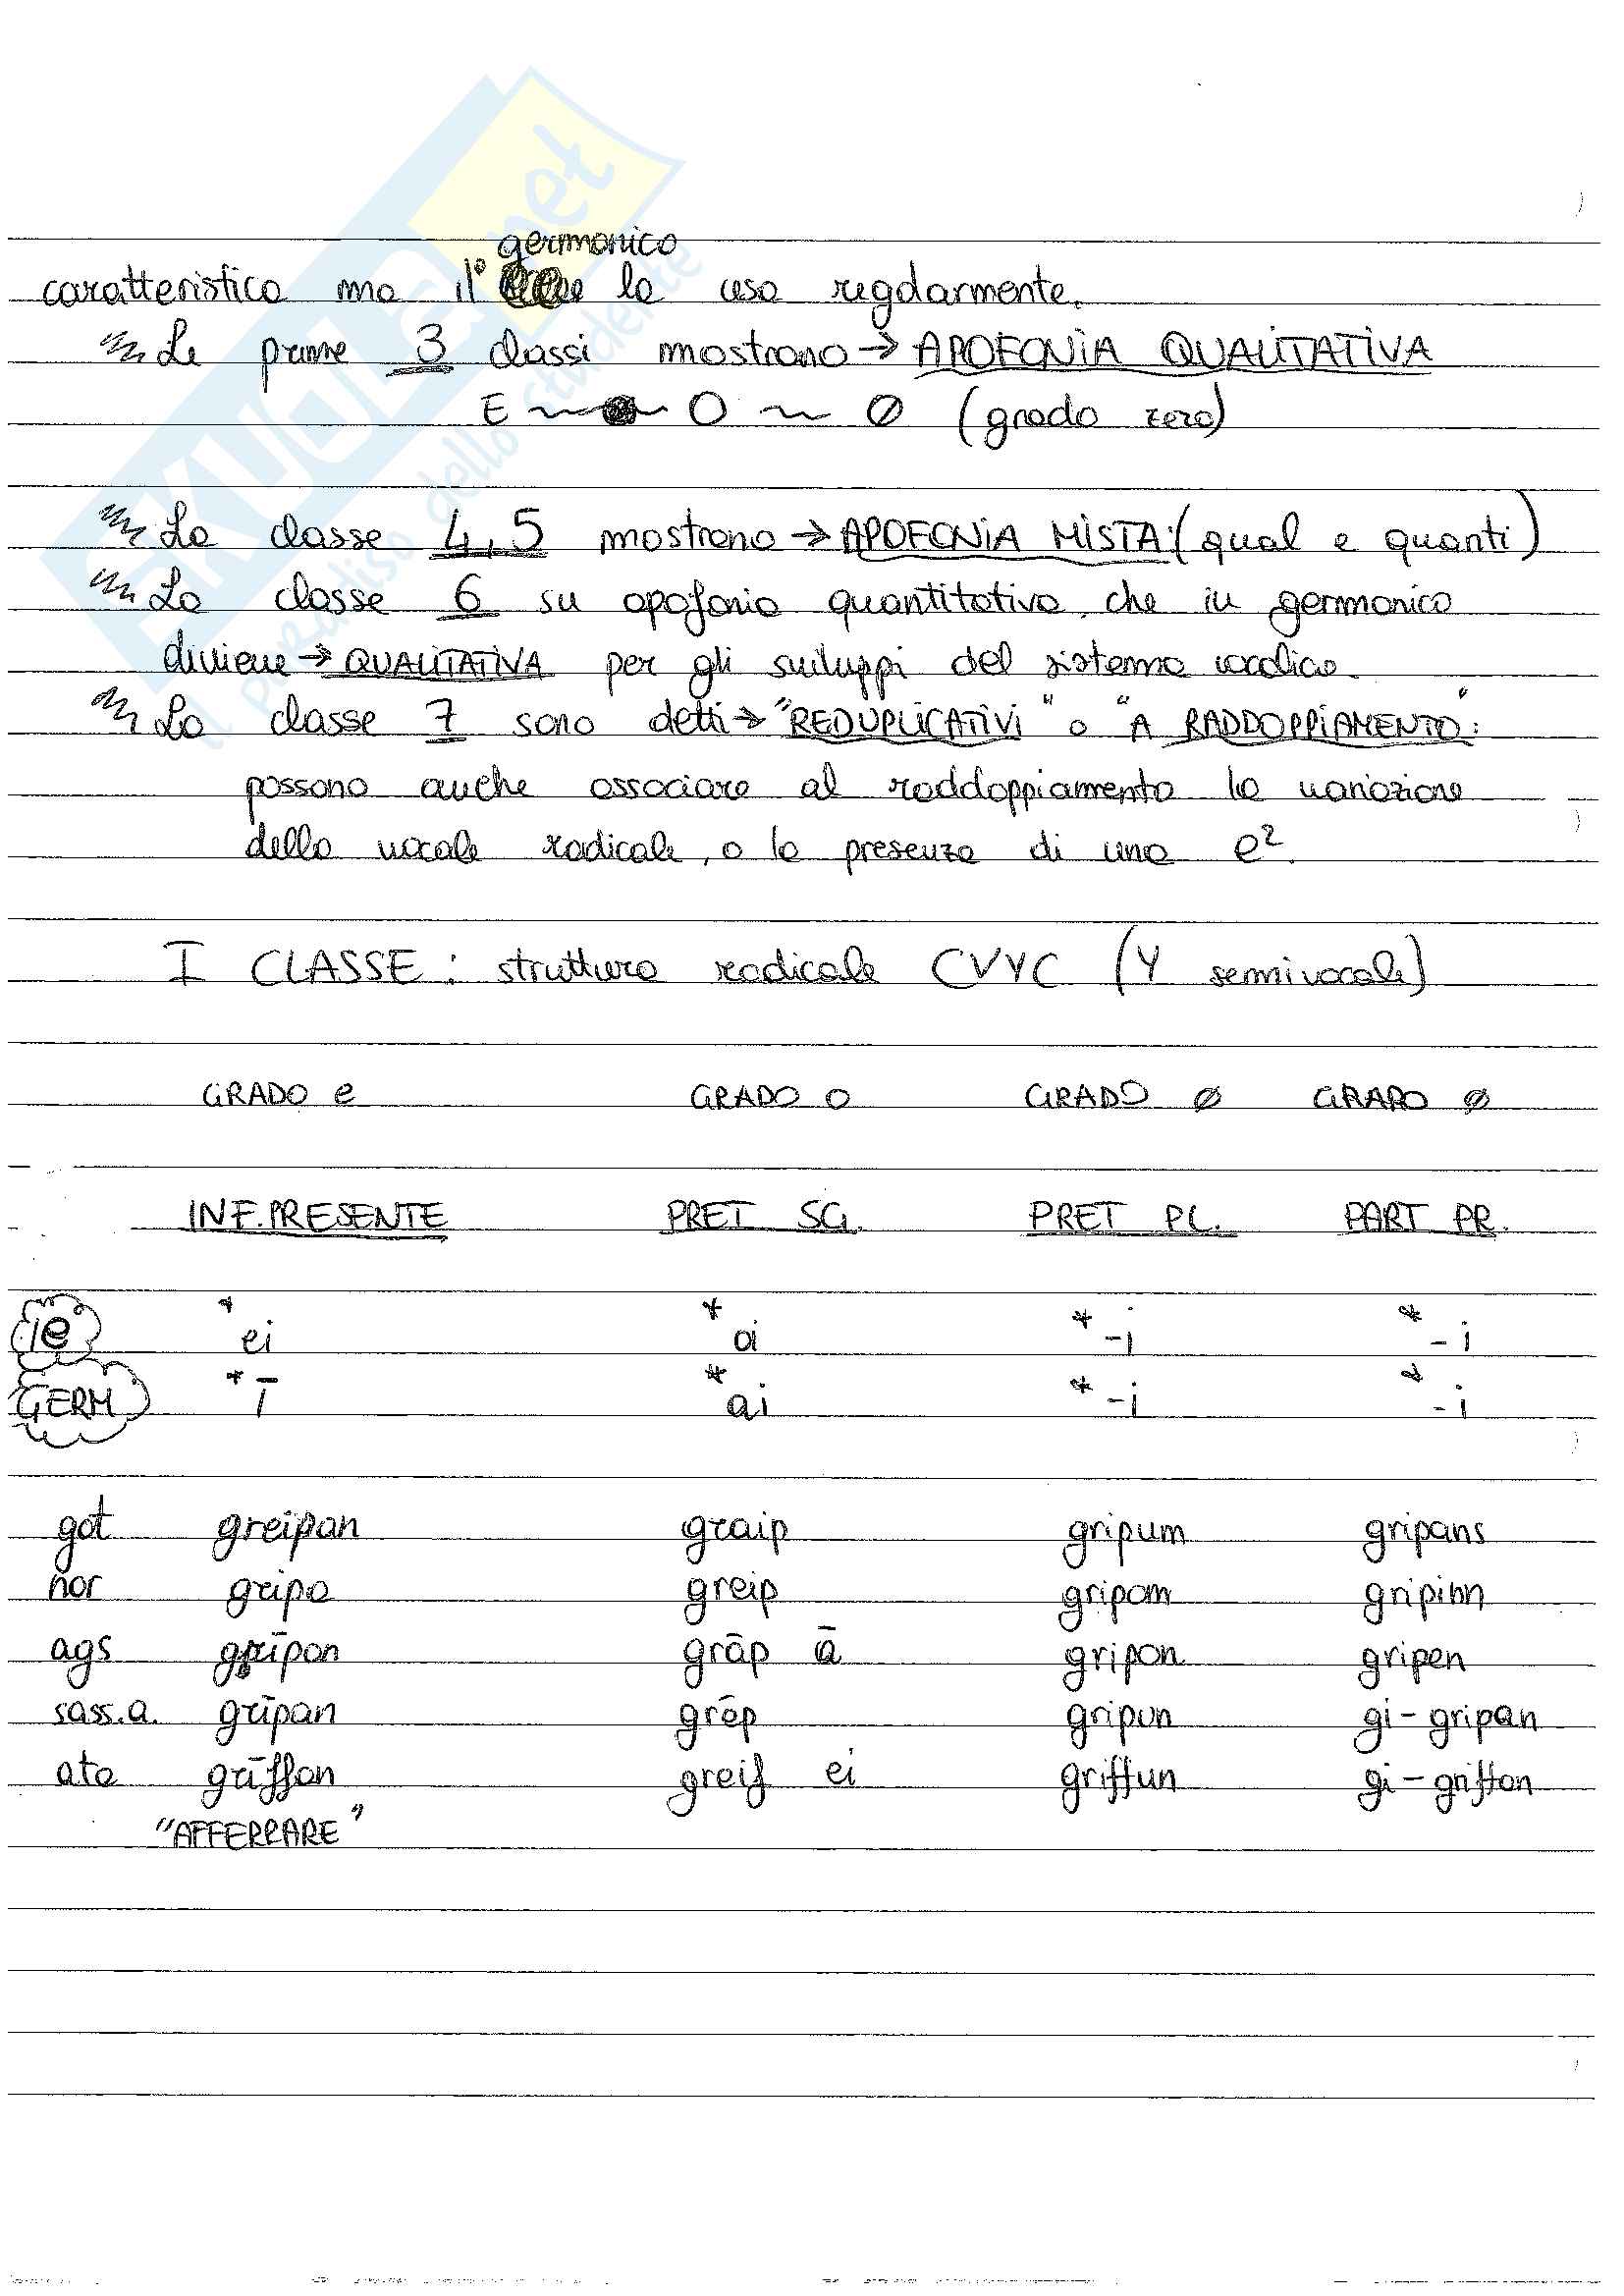 germanico
caratteristica ma il la usa regolarmente.
Le prime 3 classi mostrano → APOFONIA QUALITATIVA
E ~ O ~ Ø (grado zero)
La classe 4,5 mostrano → APOFONIA MISTA: (qual e quanti)
La classe 6 su apofonia quantitativa che in germanico
diviene → QUALITATIVA per gli sviluppi del sistema vocalico.
La classe 7 sono detti → "REDUPLICATIVI" o "A RADDOPPIAMENTO":
possono anche associare al raddoppiamento la variazione
della vocale radicale, o la presenza di una e².
I CLASSE: struttura radicale CVYC (Y semivocale)
GRADO e GRADO O GRADO Ø GRADO Ø
INF.PRESENTE PRET SG. PRET PL. PART PR.
IE *ei *oi *-i *-i
GERM *ī *ai *-i *-i
got greipan graip gripum gripans
nor gripa greip gripom gripinn
ags grīpan grāp ā gripon gripen
sass.a. grīpan grēp gripun gi-gripan
ata grīffan greif ei griffun gi-griffan
"AFFERRARE"
SKUOLA.net
il paradiso dello studente